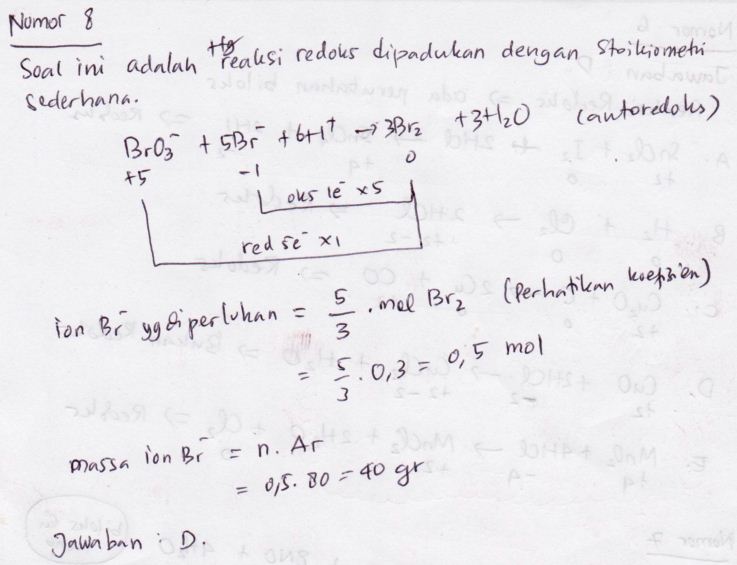 Nomor 8
Soal ini adalah reaksi redoks dipadukan dengan stoikiometri
sederhana.
BrO₃⁻ + 5Br⁻ + 6H⁺ → 3Br₂ + 3H₂O (autoredoks)
+5 -1 0
oks 1e⁻ x5
red 5e⁻ x1
ion Br⁻ yg diperlukan = 5/3 . mol Br₂ (Perhatikan koefisien)
= 5/3 . 0,3 = 0,5 mol
massa ion Br⁻ = n. Ar
= 0,5. 80 = 40 gr
Jawaban : D.